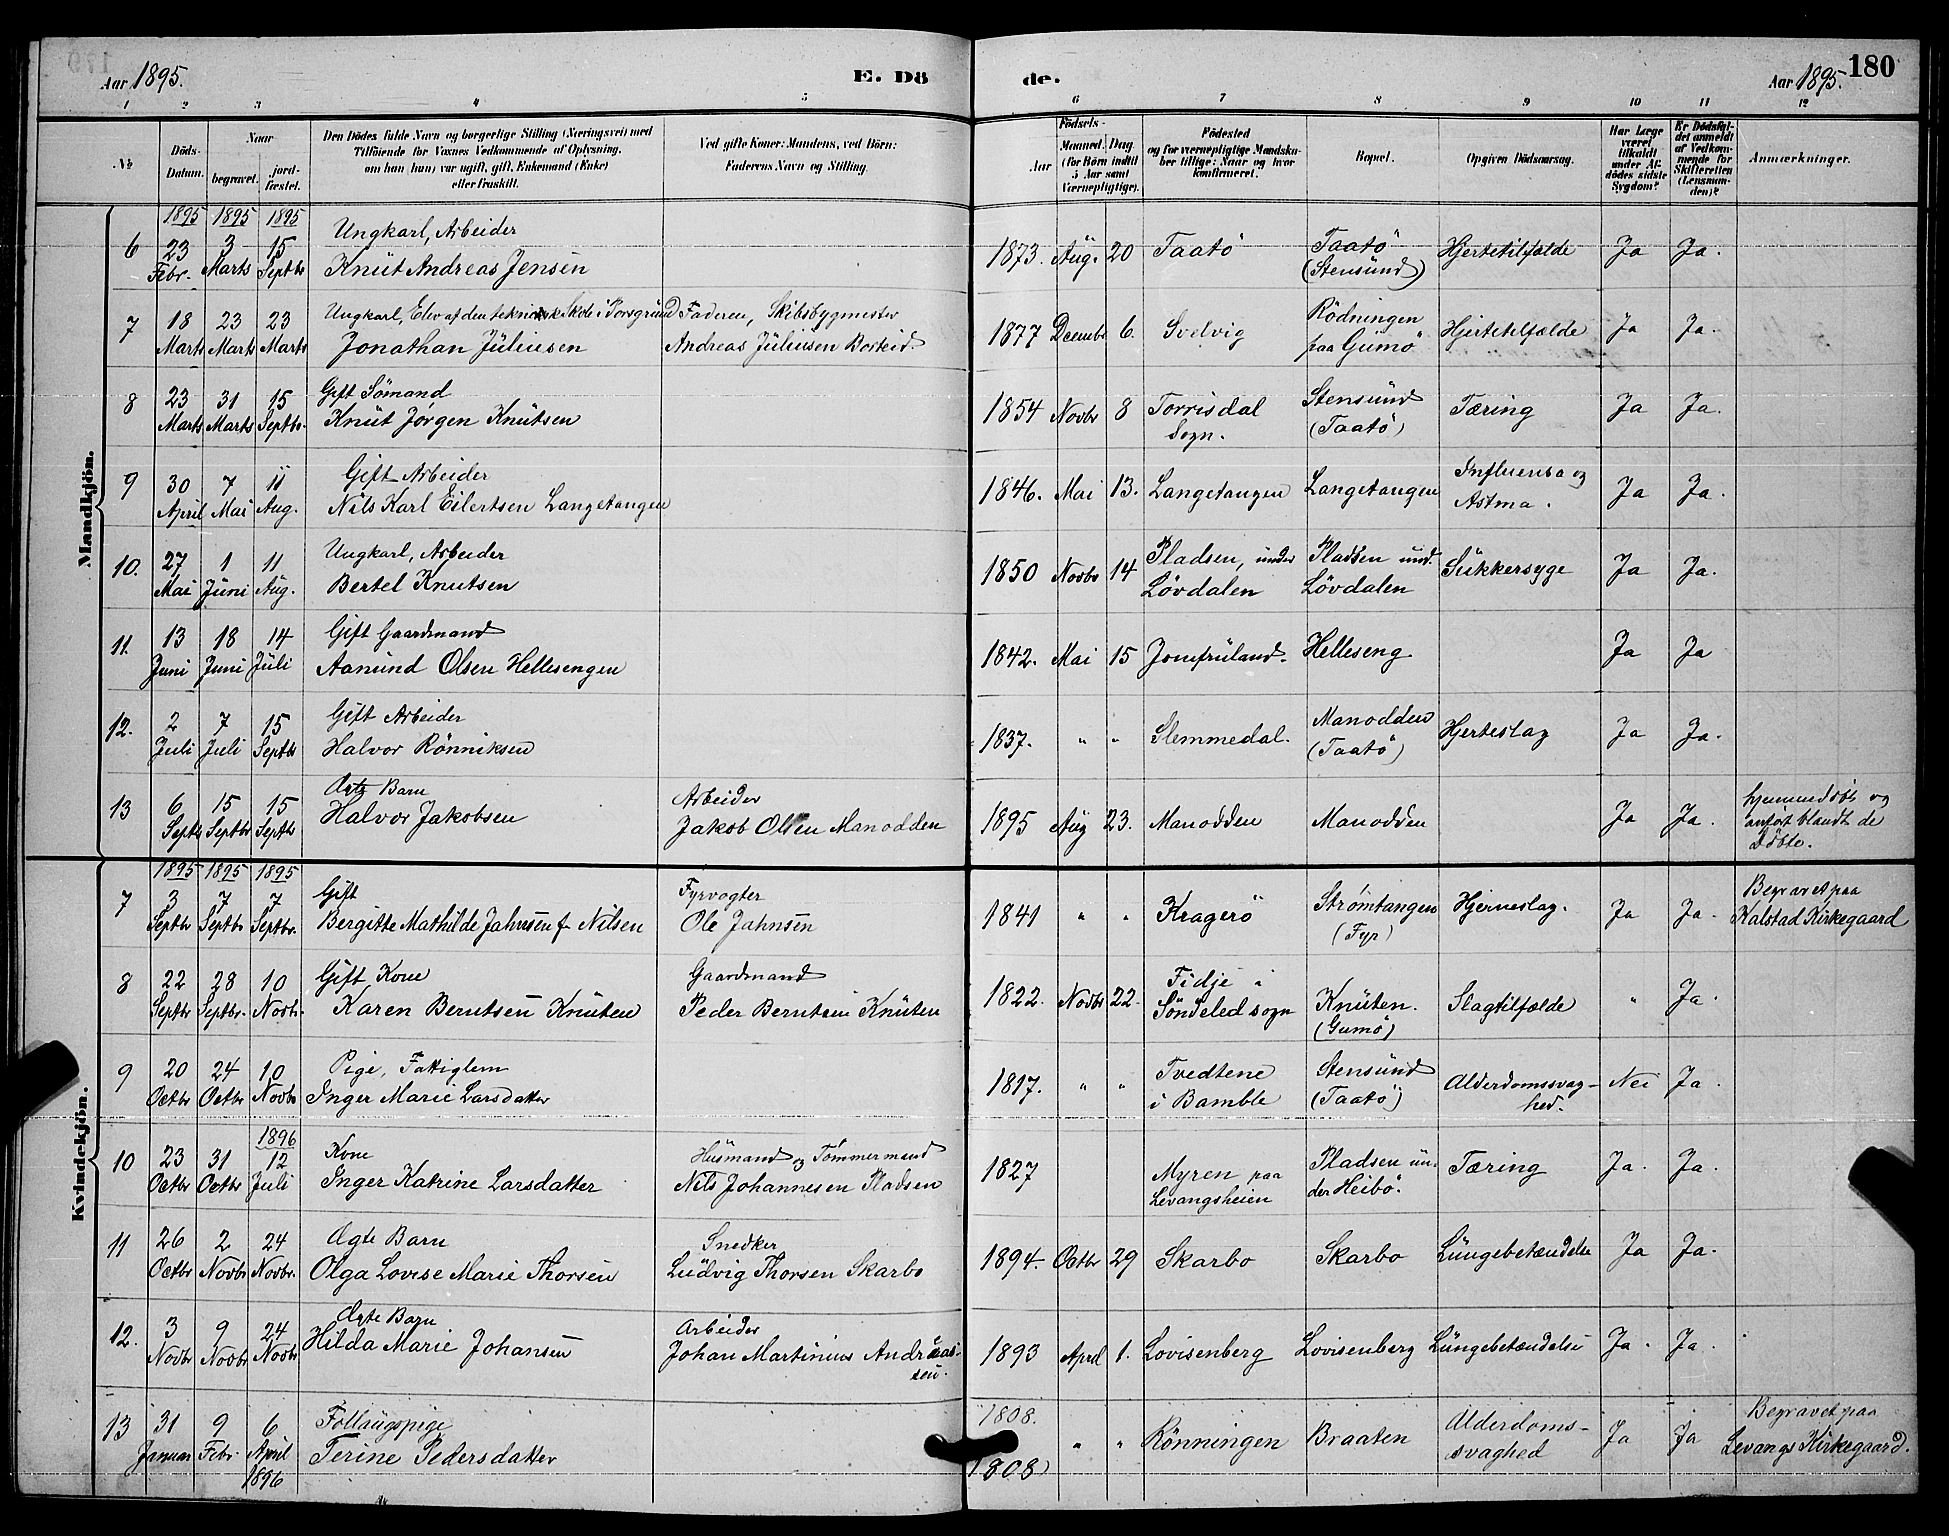 Aar 1895.
E. Dö
de.
Aar 1895.
180
1 2 3 4 5 6 7 8 9 10 11 12
№
Döds-Datum.
Naar
begravet.
jordfæstet.
Den Dödes fulde Navn og borgerlige Stilling (Næringsvei) med
Tilföiende for Voxnes Vedkommende af Oplysning,
om han (hun) var ugift, gift, Enkemand (Enke)
eller fraskilt.
Ved gifte Koner: Mandens, ved Börn:
Faderens Navn og Stilling.
Födsels-
Aar
Maaned. (for Börn indtil 5 Aar samt Værnepligtige).
Dag
Födested
og for værnepligtige Mandskaber tillige: Naar og hvor konfirmeret.
Bopæl.
Opgiven Dödsaarsag.
Har Læge været tilkaldt under Afdödes sidste Sygdom?
Er Dödsfaldet anmeldt af Vedkommende for Skifteretten (Lensmanden)?
Anmærkninger.
Mandkjön.
1895 1895 1895
6 23 Febr. 3 Marts 15 Septbr Ungkarl, Arbeider
Knut Andreas Jensen 1873. Aug. 20 Taatö Taatö (Stensund) Hjertetilfælde Ja Ja.
7 18 Marts 23 Marts 23 Marts Ungkarl, Elev af den tekniske Skole i Porsgrund Faderen, Skibsbygmester
Jonathan Juliusen Andreas Juliusen 1877 Decembr 6. Svelvig Rödningen paa Gumö Hjertetilfælde Ja Ja.
8 23 Marts 31 Marts 15 Septbr. Gift Sömand
Knut Jørgen Knutsen 1854 Novbr 8 Torrisdal Sogn. Stensund (Taatö) Tæring Ja Ja.
9 30 April 7 Mai 11 Aug. Gift Arbeider
Nils Karl Eilertsen Langetangen 1846. Mai 13. Langetangen Langetangen Influensa og Astma. Ja Ja.
10. 27 Mai 1 Juni 11 Aug. Ungkarl, Arbeider
Bertel Knutsen 1850 Novbr 14 Pladsen, under Lövdalen Pladsen und. Lövdalen Sukkersyge Ja Ja.
11. 13 Juni 18 Juni 14 Juli Gift Gaardmand
Aanund Olsen Hellesengen 1842. Mai 15 Jomfruland. Helleseng Ja Ja
12. 2 Juli 7 Juli 15 Septbr Gift Arbeider
Halvor Rönniksen 1837. " " Slemmedal. Manodden (Taatö) Hjerteslag Ja Ja.
13 6 Septbr 15 Septbr 15 Septbr Ægte Barn Arbeider
Halvor Jakobsen Jakob Olsen Manodden 1895 Aug 23. Manodden Manodden Ja Ja. hjemmedöbt og anført blandt de Döbte.
Kvindekjön.
1895 1895 1895
7 3 Septbr 7 Septbr 7 Septbr. Gift Fyrvogter
Bergitte Mathilde Jahnsen f. Nilsen Ole Jahnsen 1841 " " Kragerö Strømtangen (Fyr) Hjerneslag. Ja Ja. Begravet paa Kalstad Kirkegaard
8 22 Septbr 28 Septbr. 10 Novbr. Gift Kone Gaardmand
Karen Berntsen Knuten Peder Berntsen Knuten 1822. Novbr 22. Fidje i Söndeled sogn Knuten. (Gumö) Slagtilfælde " Ja.
9 20 Octbr 24 Octbr 10 Novbr Pige, Fattiglem
Inger Marie Larsdatter 1817. " " Tvedtene i Bamble Stensund (Taatö) Alderdomssvaghed. Nei Ja.
1896
10 23 Octbr 31 Octbr 12 Juli Kone Husmand og Tömmermand
Inger Katrine Larsdatter Nils Johannesen Pladsen 1827 Myren paa Levangsheien Pladsen under Heibö. Tæring Ja. Ja.
11 26 Octbr 2 Novbr 24 Novbr. Ægte Barn Snedker
Olga Lovise Marie Thorsen Ludvig Thorsen Skarbo 1894. Octbr 29 Skarbo Skarbo Lungebetændelse Ja Ja.
12. 3 Novbr 9 Novbr 24 Novbr Ægte Barn Arbeider
Hilda Marie Johansen Johan Martinius Andreassen. 1893 April 1. Lovisenberg Lovisenberg Lungebetændelse Ja. Ja.
13 31 Januar 9 Febr 6 April 1896 Follaugspige
Terine Pedersdatter 1808. " " Rönningen Braaten Alderdomssvaghed Ja Ja Begravet paa Levangs Kirkegaard.
1808)